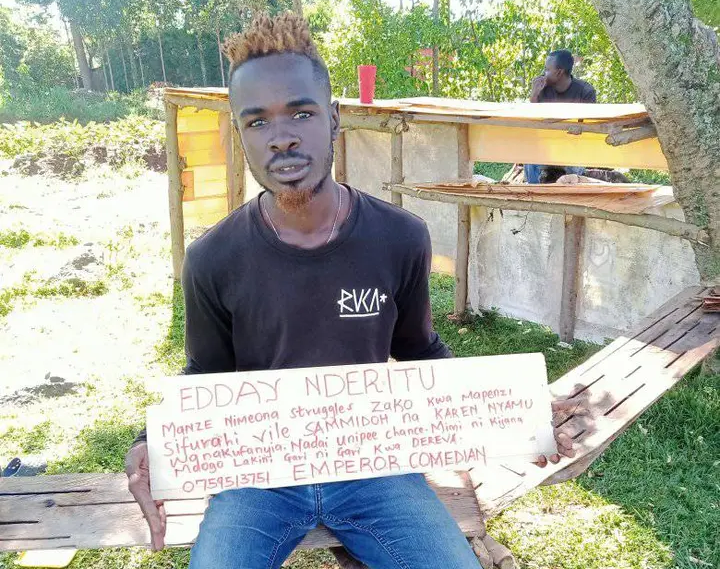 RVCA*
EDDAY NDERITU
MANZE Nimeona struggles ZAKO Kwa Mapenzi
Sifurahi vile SAMMIDOH na KAREN NYAMU
Wanakufanyia. Nadai Unipee chance. Mimi ni Kijana
Mdogo Lakini Gari ni Gari Kwa DEREVA.
0759513751 EMPEROR COMEDIAN